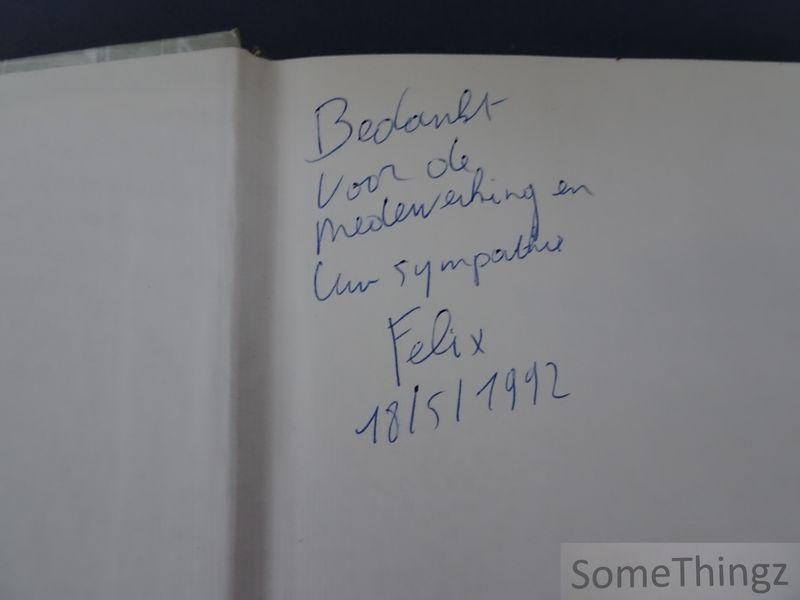 Bedankt
voor de
medewerking en
Uw sympathie
Felix
18/5/1992
SomeThingz